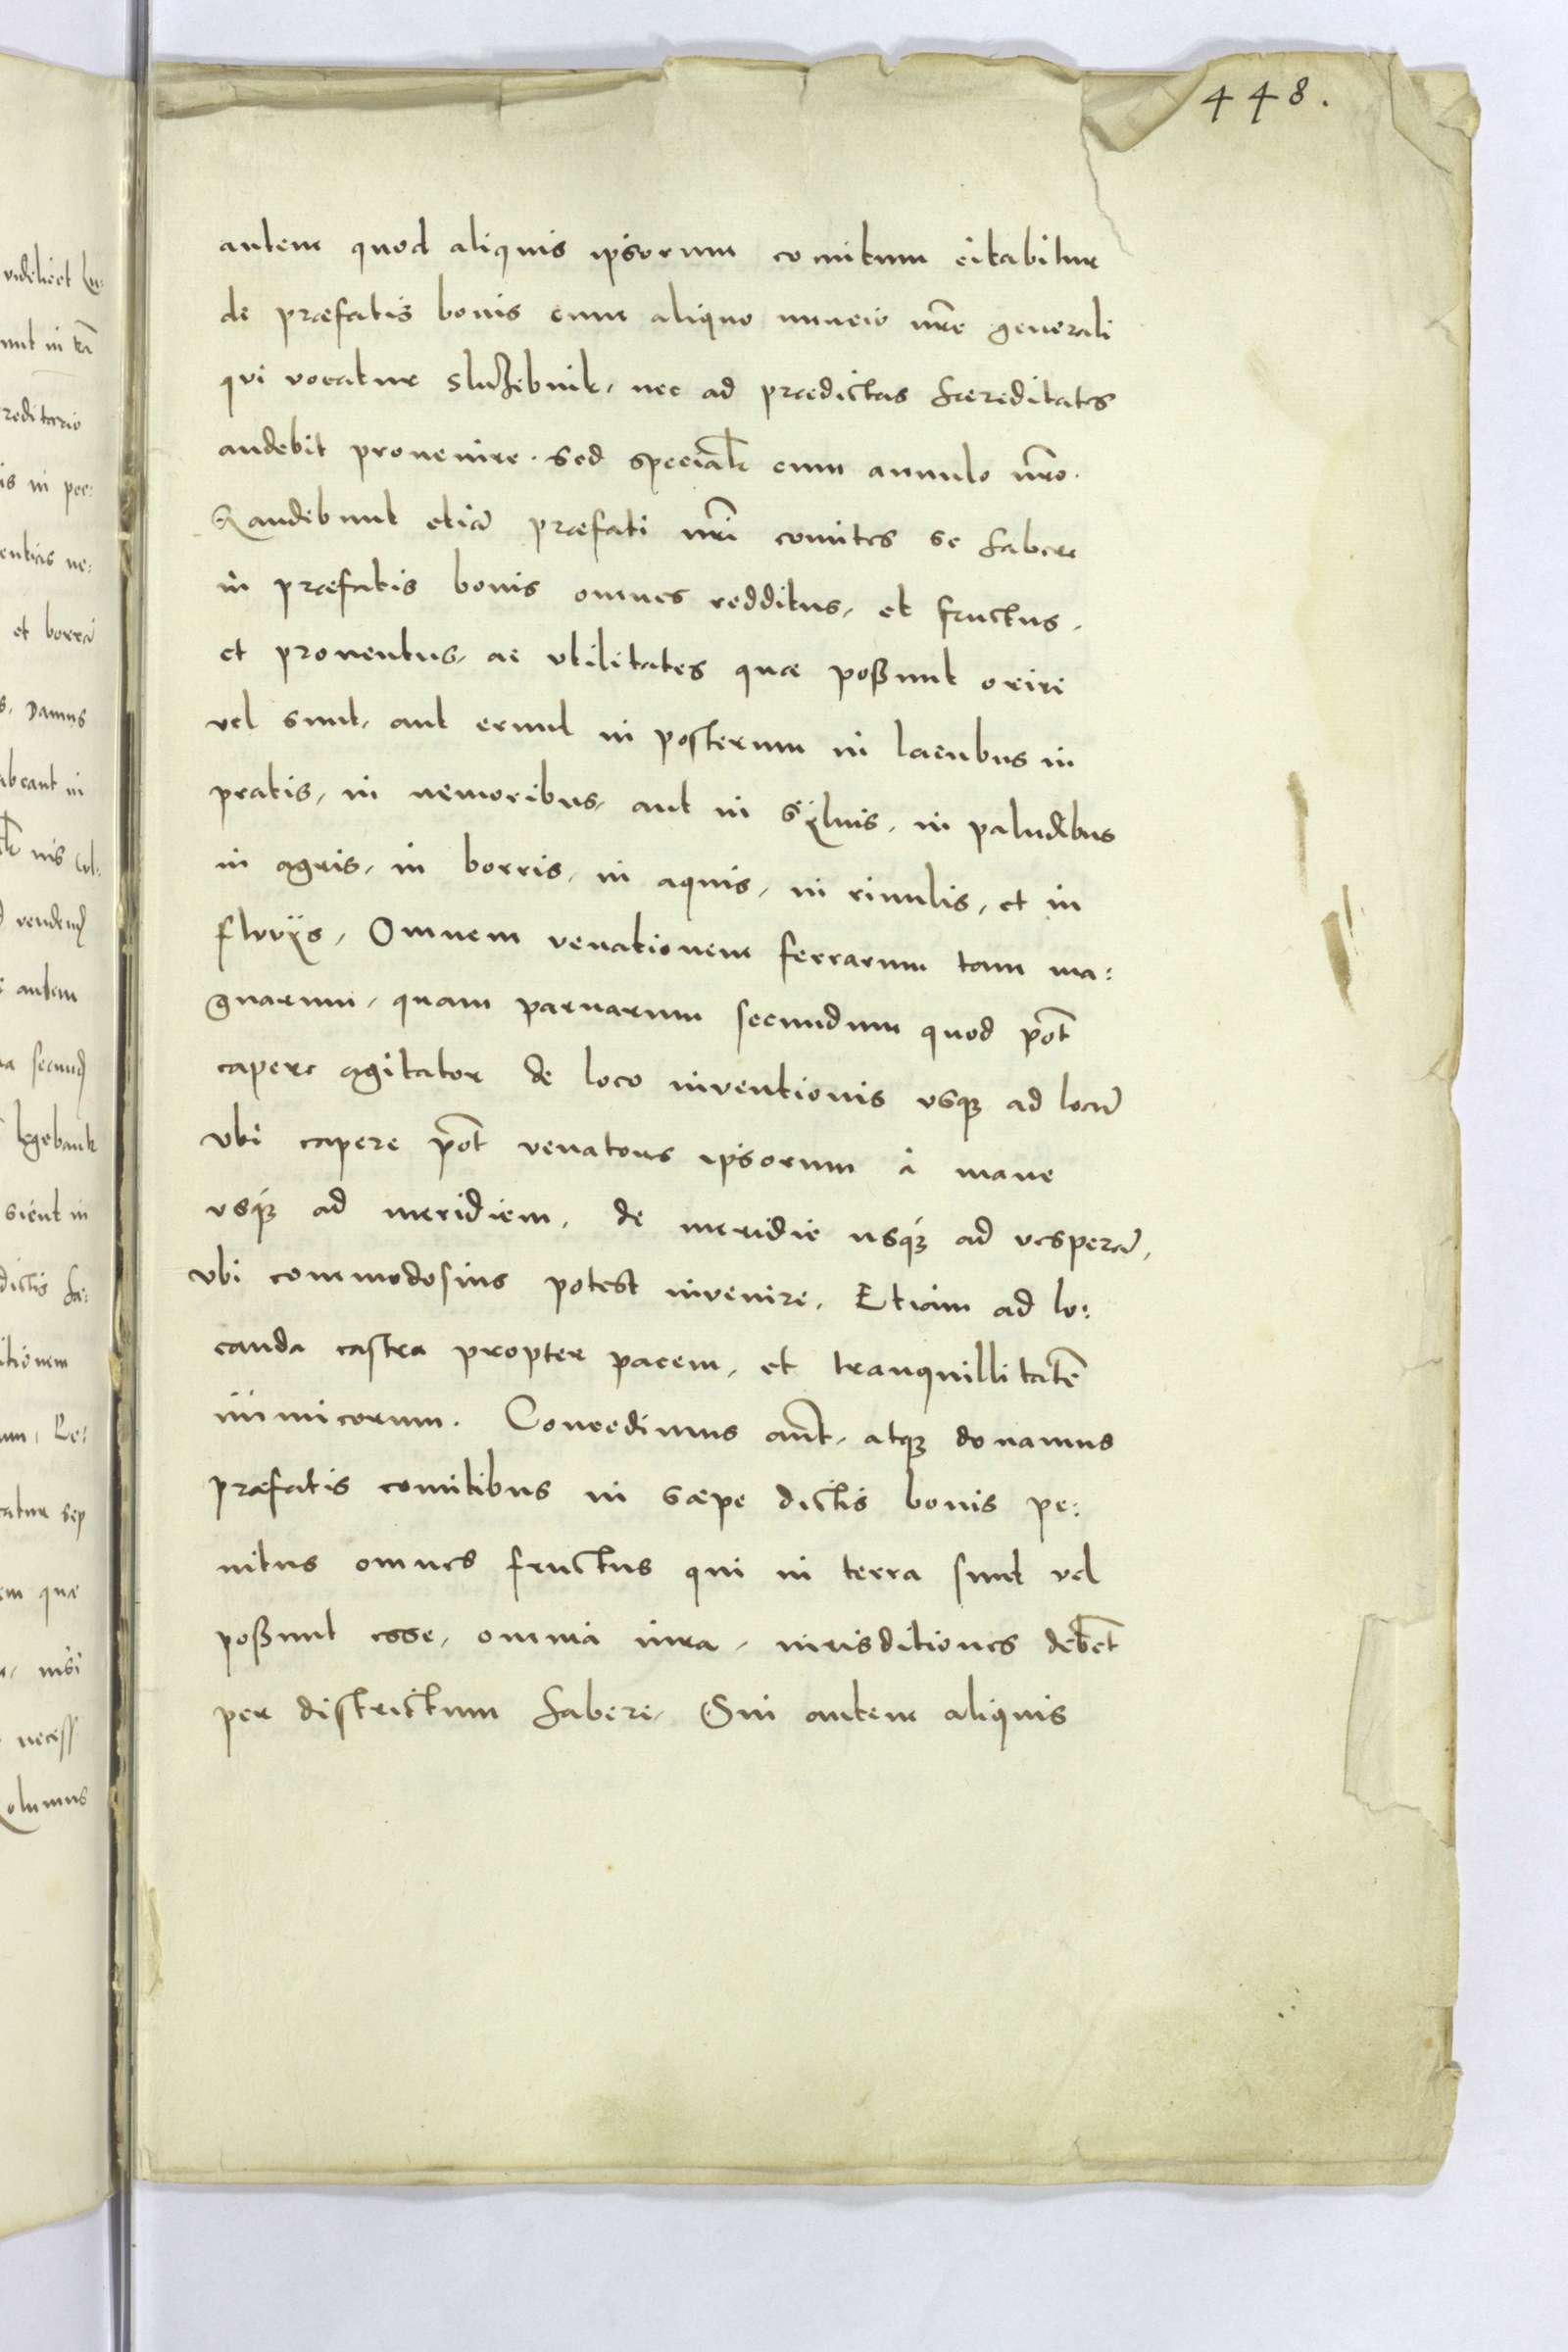 448.
autem quod aliquis ipsorum comitum citabitur
de præfatis bonis cum aliquo nuncio nr̃e generali
qui vocatur služebnik, nec ad prædictas hæreditates
audebit provenire. sed special̃r cum annulo nr̃o.
Gaudebunt etiã præfati nr̃i comites se habere
in præfatis bonis omnes redditus, et fructus,
et proventus, ac vtilitates quæ poßunt oriri
vel sunt, aut erunt in posterum in lacubus in
pratis, in nemoribus, aut in sÿluis, in paludibus
in agris, in borris, in aquis, in riuulis, et in
fluvÿs, Omnem venationem ferrarum tam ma:
gnarum, quam parvarum secundum quod põt
capere agitator de loco inventionis vsqꝫ ad locũ
vbi capere põt venatous ipsorum à mane
vsqꝫ ad meridiem, de meridie usqꝫ ad vesperã,
vbi commodosius potest invenire. Etiam ad lo:
canda castra propter pacem, et tranquillitatẽ
inimicorum. Concedimus aũt, atqꝫ donamus
præfatis comitibus in sæpe dictis bonis pe:
nitus omnes fructus qui in terra sunt vel
poßunt esse, omnia iura, iurisditiones debẽt
per districtum habere, Qui autem aliquis
videlicet
reditario
et borrã
Damus
autem
legebant
sicut in
dictis hæ:
itionem
em quæ
nisi